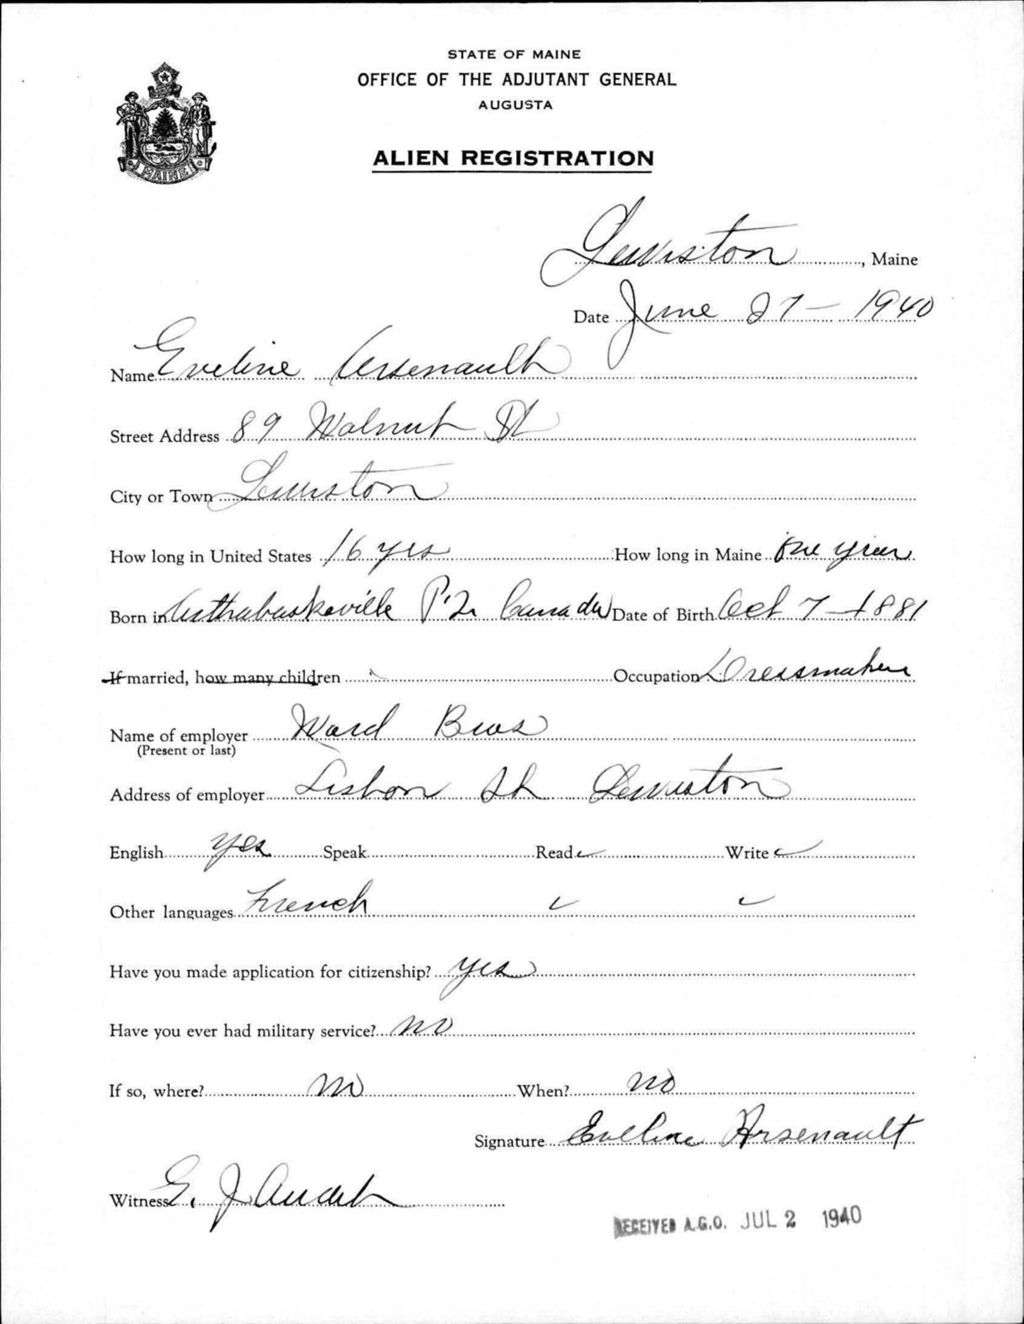 STATE OF MAINE
OFFICE OF THE ADJUTANT GENERAL
AUGUSTA
MAINE
ALIEN REGISTRATION
Lewiston, Maine
Date June 27 - 1940
Name Eveline Arsenault
Street Address 89 Walnut St
City or Town Lewiston
How long in United States 16 yrs How long in Maine One year
Born in Arthabaskaville P.Q. Canada Date of Birth Oct 7 - 1881
If married, how many children Occupation Dressmaker
Name of employer Ward Bros
(Present or last)
Address of employer Lisbon St Lewiston
English yes Speak Read ✓ Write ✓
Other languages French ✓ ✓
Have you made application for citizenship? yes
Have you ever had military service? no
If so, where? no When? no
Signature Eveline Arsenault
Witness E. J. Audet
RECEIVED A.G.O. JUL 2 1940